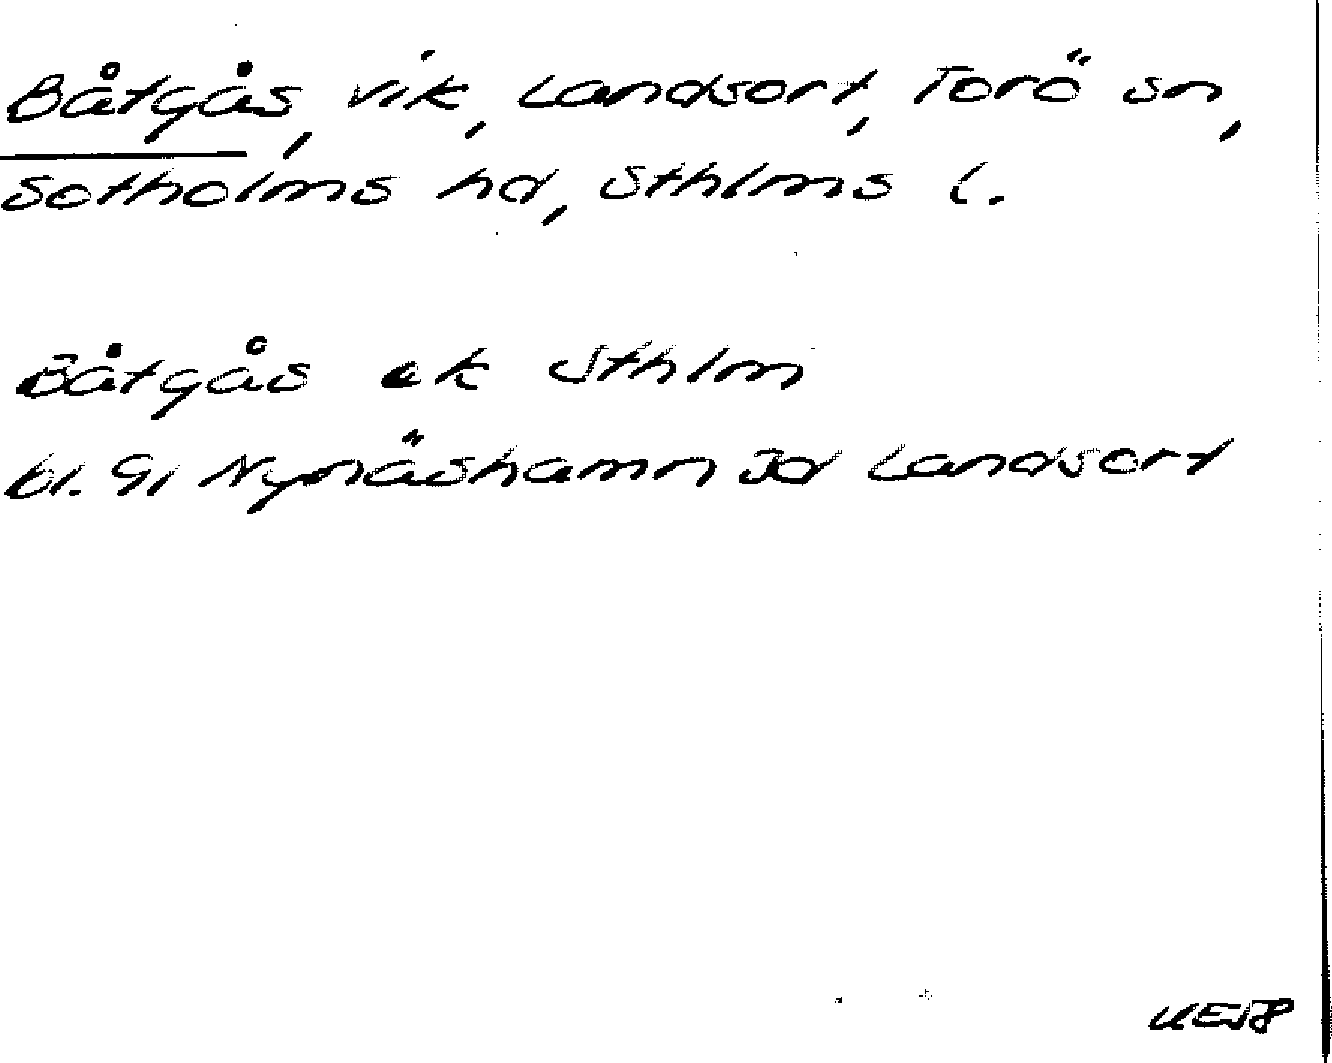 Båtgås, vik, Landsort, Torö sn,
Sotholms hd, Sthlms l.
Båtgås ek Sthlm
bl. 91 Nynäshamn Jd Landsort